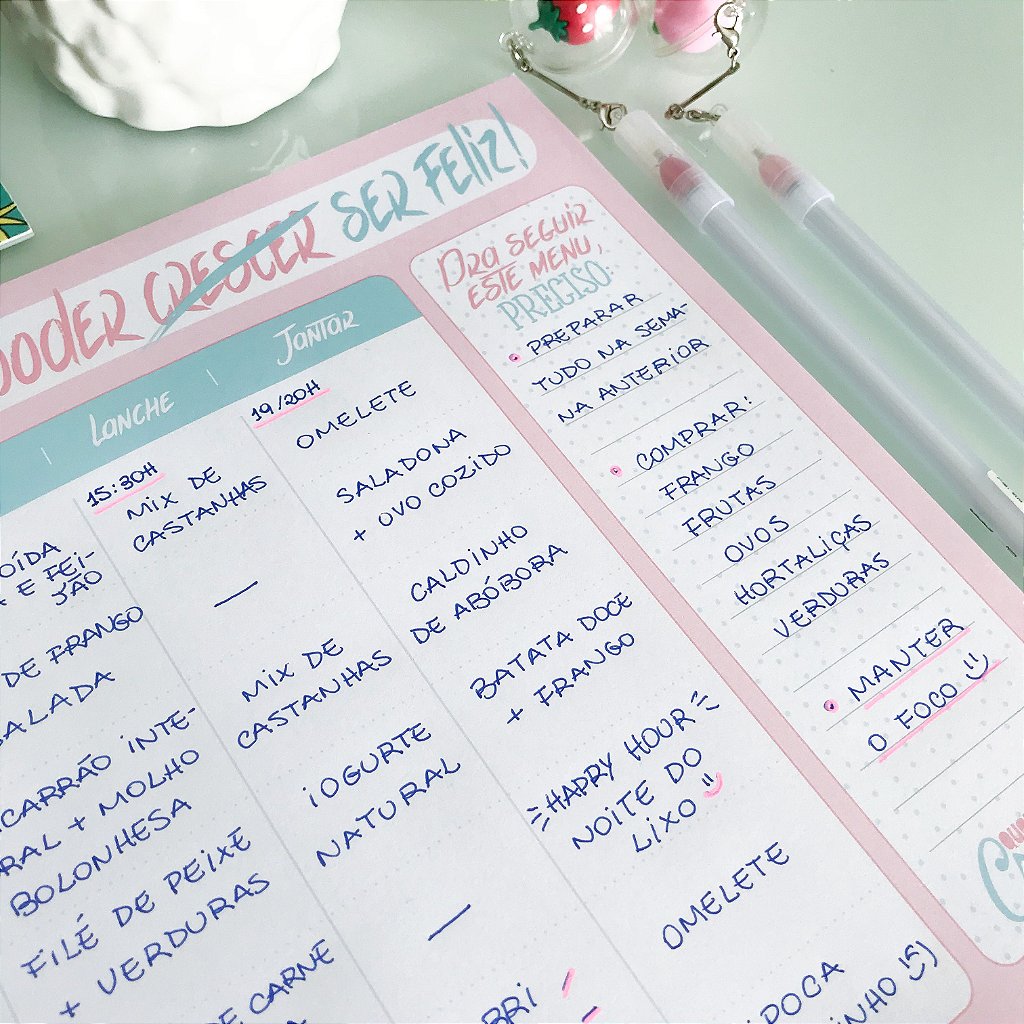 CRESCER SER FELIZ!
LANCHE
15:30H
MIX DE
CASTANHAS
—
MIX DE
CASTANHAS
IOGURTE
NATURAL
—
JANTAR
19/20H
OMELETE
SALADONA
+ OVO COZIDO
CALDINHO
DE ABÓBORA
BATATA DOCE
+ FRANGO
HAPPY HOUR
NOITE DO
LIXO
OMELETE
E FEI-
JÃO
DE FRANGO
INTE-
+ MOLHO
BOLONHESA
FILÉ DE PEIXE
+ VERDURAS
DE CARNE
PRA SEGUIR
ESTE MENU,
PRECISO:
• PREPARAR
TUDO NA SEMA-
NA ANTERIOR
• COMPRAR:
FRANGO
FRUTAS
OVOS
HORTALIÇAS
VERDURAS
• MANTER
O FOCO